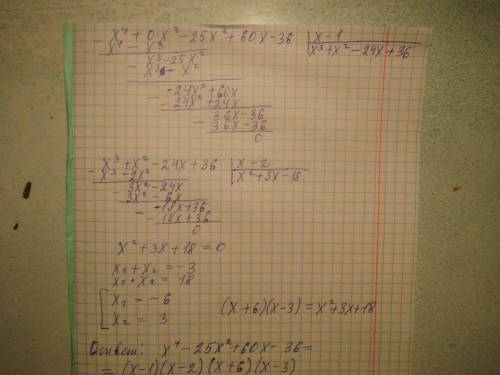 x⁴ + 0·x³ - 25x² + 60x - 36 | x - 1
x⁴ - x³ | x³ + x² - 24x + 36
x³ - 25x²
x³ - x²
-24x² + 60x
-24x² + 24x
36x - 36
36x - 36
0
x³ + x² - 24x + 36 | x - 2
x³ - 2x² | x² + 3x - 18
3x² - 24x
3x² - 6x
-18x + 36
-18x + 36
0
x² + 3x + 18 = 0
x₁ + x₂ = -3
x₁ · x₂ = 18
x₁ = -6
x₂ = 3
(x + 6)(x - 3) = x² + 3x + 18
Ответ: x⁴ - 25x² + 60x - 36 =
= (x - 1)(x - 2)(x + 6)(x - 3)